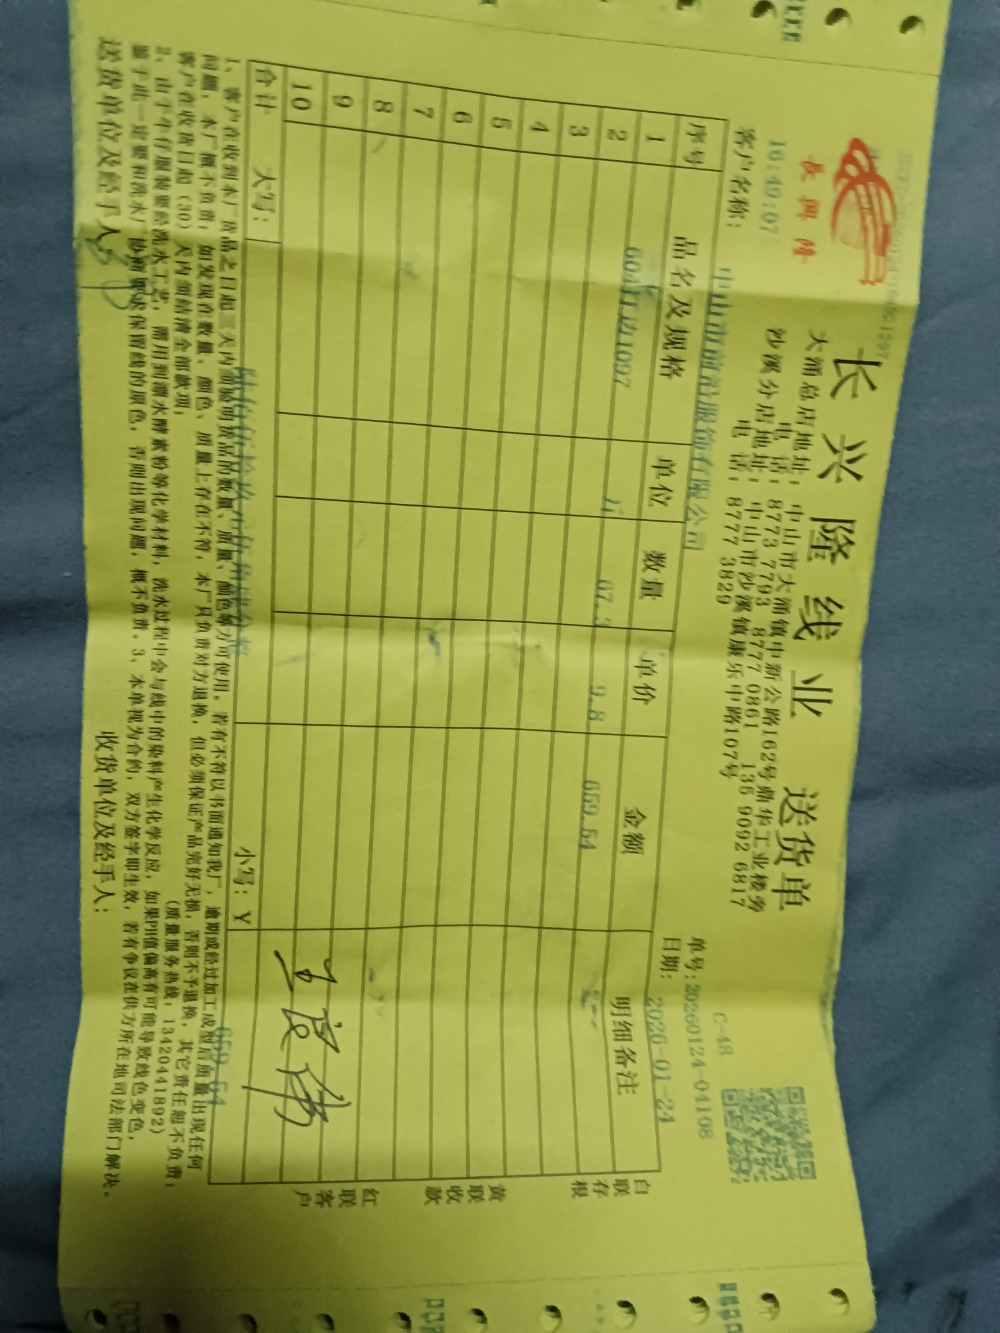 长兴隆线业 送货单
長興隆
大涌总店地址:中山市大涌镇中新公路162号鼎华工业楼旁
电话:8773 7793 8777 0861 135 9092 6817
沙溪分店地址:中山市沙溪镇康乐中路107号
电话:8777 3829
C-48
16:40:07
单号:20260124-04108
客户名称:
服饰有限公司
日期: 2026-01-24
序号 品名及规格 单位 数量 单价 金额 明细备注
1 67.3 9.8 659.54
2
3
4
5
6
7
8
9
10
合计 大写: 小写:¥ 659.54
白联存根
黄联收款
红联客户
1、客户在收到本厂货品之日起三天内须验明货品的数量、质量、颜色等方可使用。若有不符以书面通知我厂,逾期或经过加工成型后质量出现任何
问题,本厂概不负责;如发现在数量、颜色、质量上存在不符,本厂只负责对方退换,但必须保证产品完好无损,否则不予退换,其它责任恕不负责;
客户在收货日起(30)天内须结清全部款项; (质量服务热线:13420441892)
2、由于牛仔服装要经洗水工艺,需用到漂水酵素粉等化学材料,洗水过程中会与线中的染料产生化学反应,如果PH值偏高有可能导致线色变色,
鉴于此一定要和洗水厂协商要求保留线的原色,否则出现问题,概不负责。3、本单视为合约,双方签字即生效,若有争议在供方所在地司法部门解决。
送货单位及经手人: 收货单位及经手人: